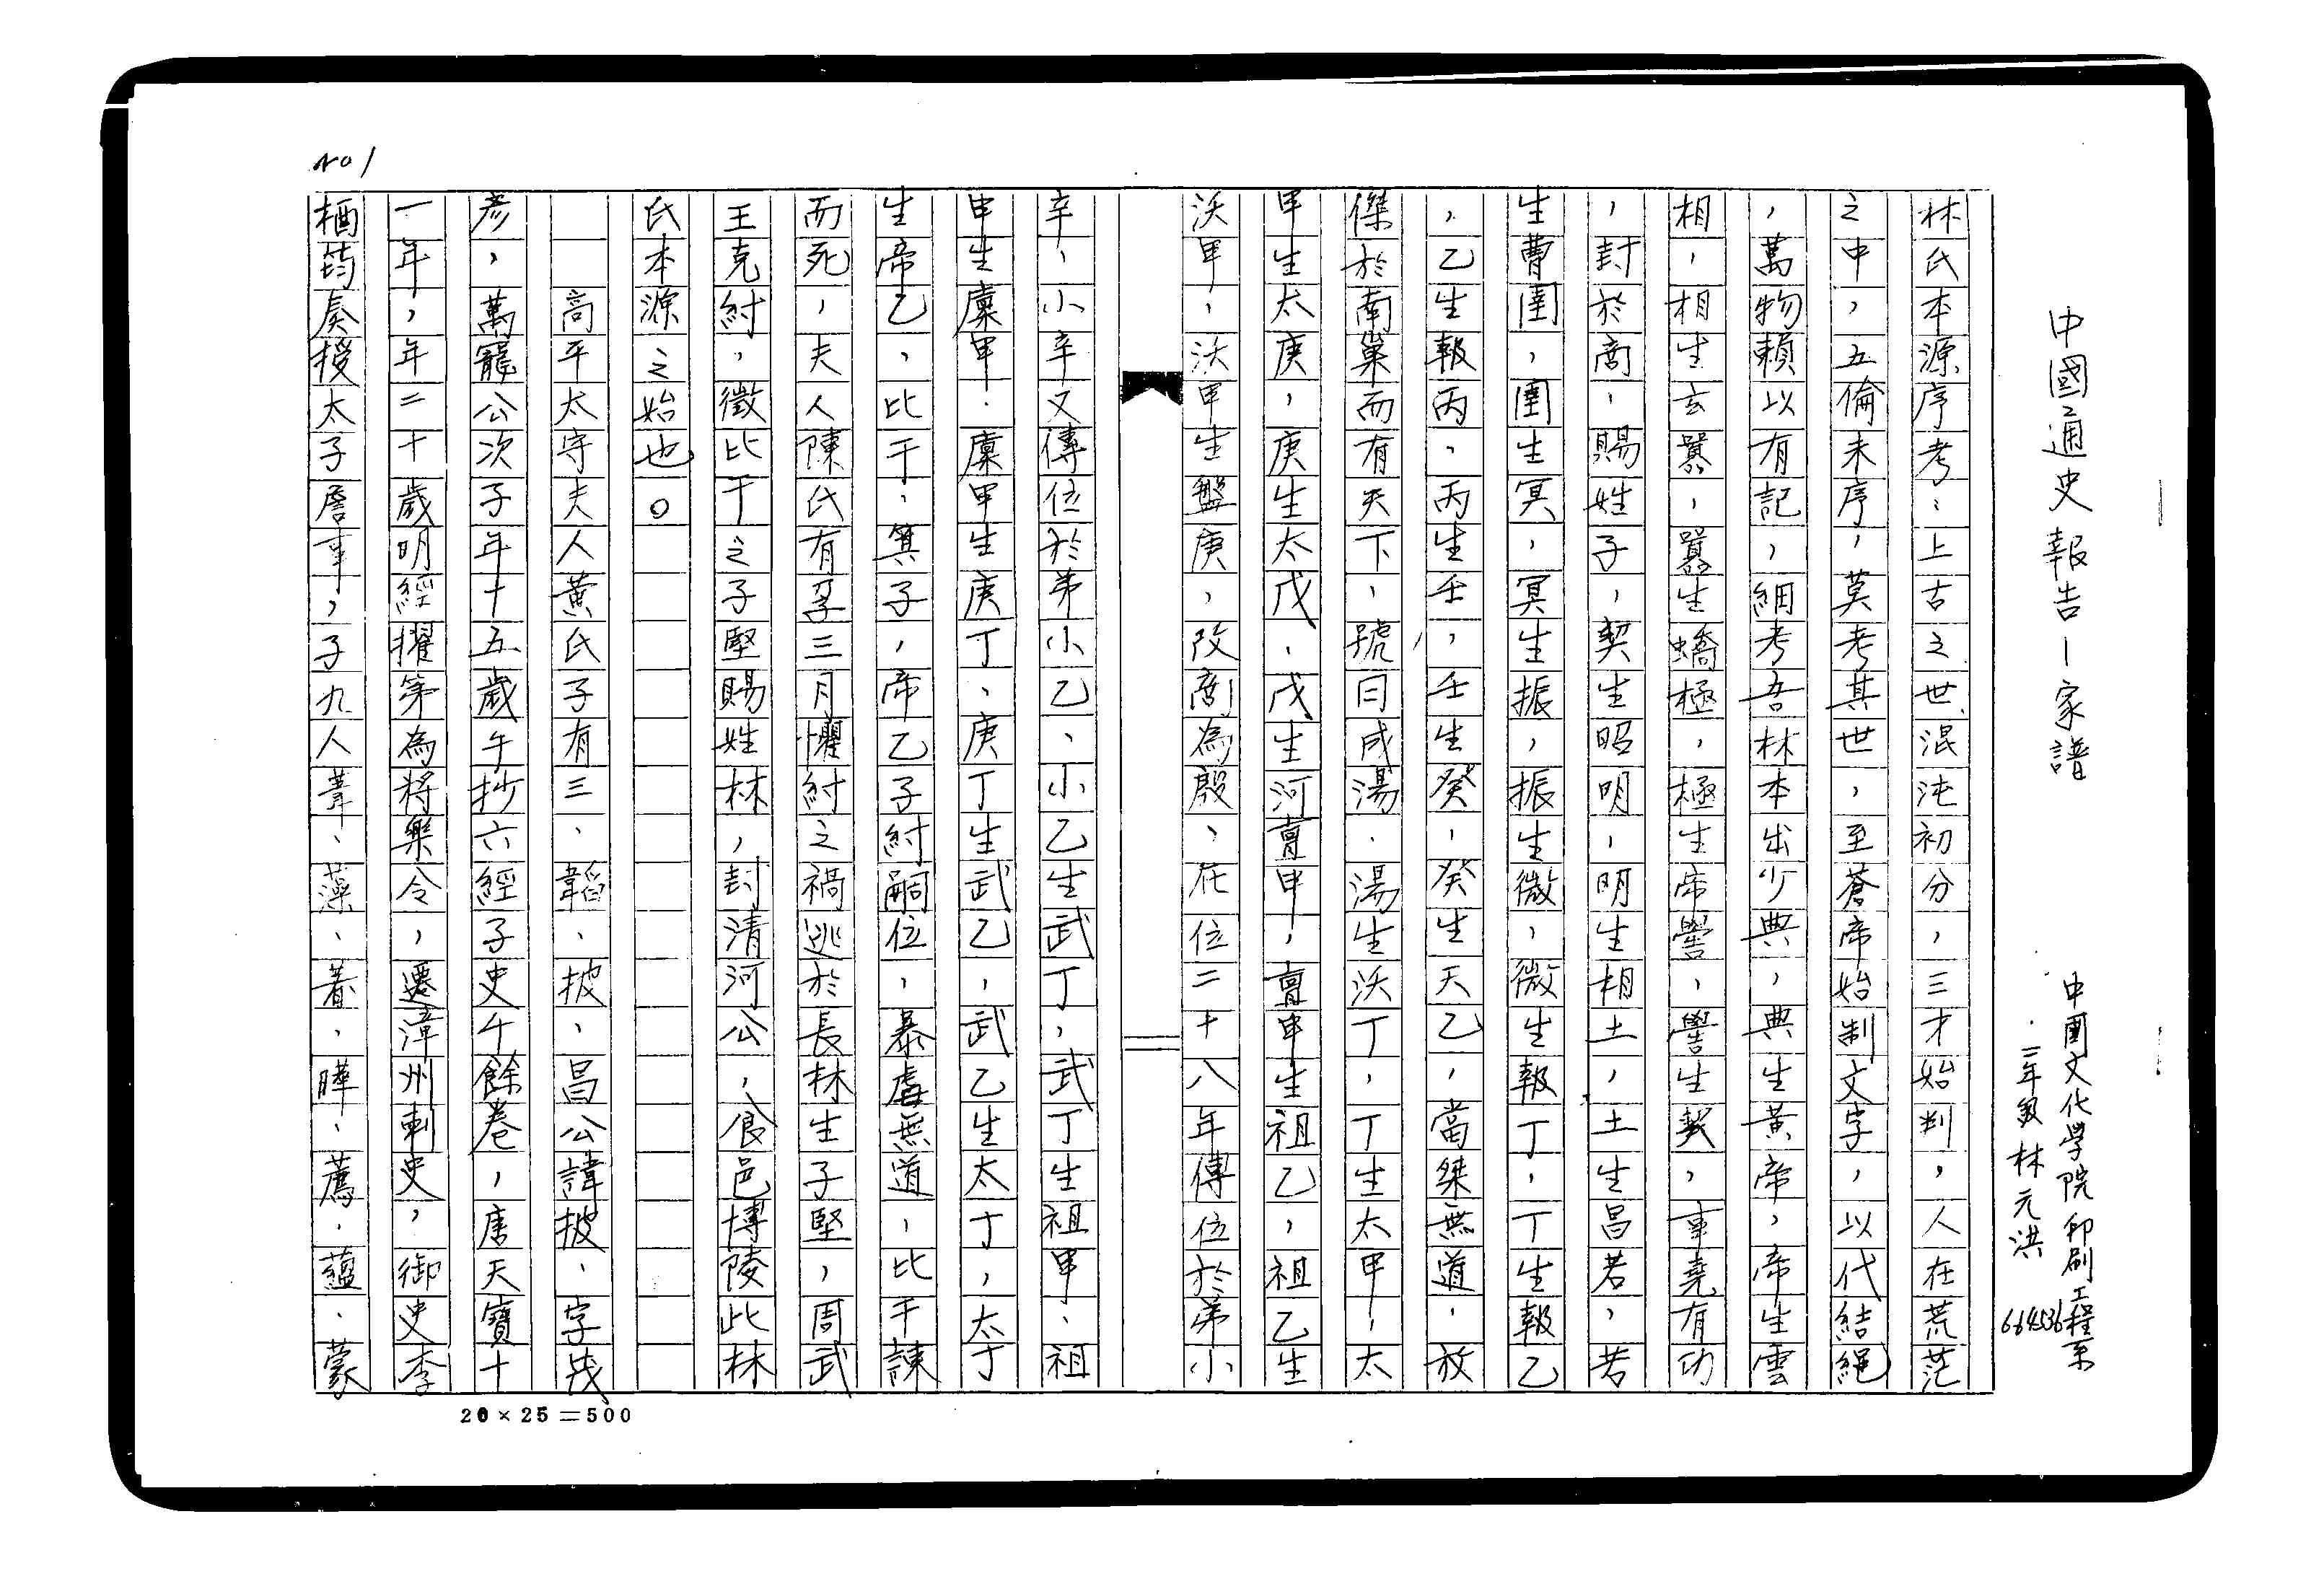 中國通史報告—家譜
中國文化学院印刷工程系
二年級林元洪 664536
林氏本源序考：上古之世、混沌初分，三才始判，人在荒茫
之中，五倫未序，莫考其世，至蒼帝始制文字，以代結繩
，萬物賴以有記，細考吾林本出少典，典生黃帝，帝生雲
相，相生玄囂，囂生蟜極，極生帝嚳，嚳生契，事堯有功
，封於商，賜姓子，契生昭明，明生相土，土生昌若，若
生曹圉，圉生冥，冥生振，振生微，微生報丁，丁生報乙
，乙生報丙，丙生壬，壬生癸，癸生天乙，當桀無道，放
傑於南巢而有天下，號曰成湯．湯生沃丁，丁生太甲，太
甲生太庚，庚生太戊．戊生河亶甲，亶甲生祖乙，祖乙生
沃甲，沃甲生盤庚，改商為殷、在位二十八年傳位於弟小
辛，小辛又傳位於弟小乙、小乙生武丁，武丁生祖甲、祖
甲生廪甲．廪甲生庚丁、庚丁生武乙，武乙生太丁，太丁
生帝乙，比干、箕子，帝乙子紂嗣位，暴虐無道，比干諫
而死，夫人陳氏有孕三月懼紂之禍逃於長林生子堅，周武
王克紂，徵比干之子堅賜姓林，封清河公，食邑博陵此林
氏本源之始也。
高平太守夫人黃氏子有三、韜、披、昌公諱披、字茂
彥，萬寵公次子年十五歲手抄六經子史千餘卷，唐天寶十
一年，年二十歲明經擢第為將樂令，遷漳州刺史，御史李
栖筠奏授太子詹事，子九人葦、藻、著、曄、薦．蘊．蒙
20×25=500
NO1